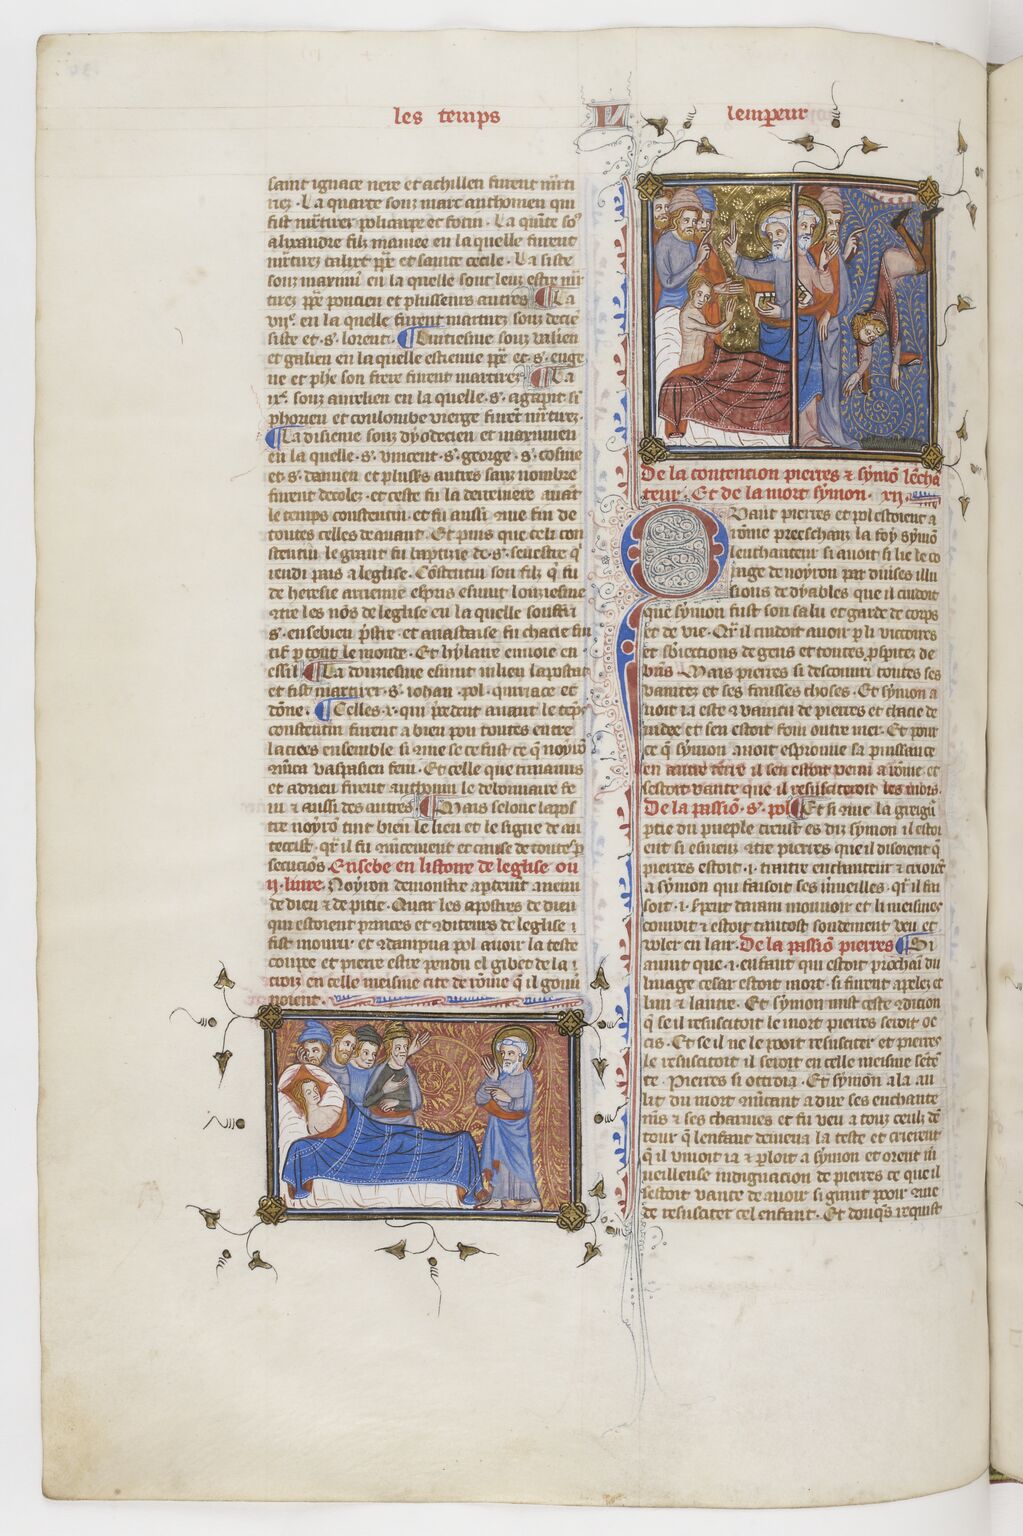 les temps
lempeur
saint ignace nere et achillen furent mrti
riez. La quarte souz marc anthonien qui
fist mrtirer policarpe et fotin. La quite so9
alixandre filz mamee en la quelle furent
mrtirez calixt ppe et sainte cecile. La siste
souz maximin en la quelle sont leuz estre mr
tirez ppe poncien et plusseurs autres La
viie. en la quelle furent martirez souz decie
siste et .s. lorent. Luitiesme souz valien
et galien en la quelle estienne ppe et .s. euge
ne et phe son frere furent martirez La
ixe. souz aurelien en la quelle .s. agapit si
phorien et coulombe vierge furet mrtirez.
La disieme souz dyoclecien et maximien
en la quelle .s. vincent .s. george .s. cosme
et .s. damien et pluss's autres sanz nombre
furent decolez. et ceste fu la derreniere auat
le temps constentin. et fu aussi 9me fin de
toutes celles deuant. Et puis que celi con
stentin le grant fu baptizie de .s. seuestre q'
rendi pais a leglise. Costentin son filz q fu
de heresie arrienne espris esmut lonziesme
9tre les nos de leglise en la quelle souffri
.s. eusebien pstre. et anastaise fu chacie fui
tif p tout le monde. Et hylaire enuoie en
essil La douziesme esmut iulien lapostat
et fist martirer .s. iohan. pol. quiriace et
done. Celles .x. qui predent auant le teps
constentin furent a bien pou toutes entre
laciees ensemble si 9me se ce fust ce q noyro
9menca vaspasien feni. Et celle que traianus
et adrien furent anthonin le debonnaire fe
ni & aussi des autres. Mais selonc lapos
tre noyro tint bien le lieu et le signe de an
tecrist. qr il fu 9mencement et cause de toutes p
secucios. Eusebe en listoire de leglise ou
.ii. liure. Noyron demonstre apdeuit anemi
de dieu & de pitie. Quar les apostres de dieu
qui estoient princes et 9diteurs de leglise i
fist mourir et 9dampna pol auoir la teste
coupee et pierre estre pendu el gibet de la
croiz en celle meisme cite de rome q il gouu
noient.
De la contencion pierres & symo lecha
teur. Et de la mort symon. xii
Quant pierres et pol estoient a
rome preeschanz la foy symo
lenchanteur si auoit si lie le co
rage de noyron par diuises illu
sions de dyables que il cuidoit
que symon fust son salu et garde de corps
et de vie. Qr il cuidoit auoir p li victoires
et sbiections de gens et toutes pspitez de
bns. Mais pierres si descouuri toutes ses
vanitez et ses fausses choses. Et symon a
uoit ia este 9uaincu de pierres et chacie de
iudee et sen estoit foui outre mer. Et pour
ce q symon auoit esprouue sa puissance
en autre terre il sen estoit penu a rome et
sestoit vante que il resusciteroit les mors.
De la passio .s. pol Et si 9me la greigñ
ptie du pueple cieust es diz symon il estoi
ent si esmeuz 9tre pierres que il disoient q
pierres estoit .i. traitre enchanteur & croioiet
a symon qui faisoit ses mueilles. qr il fai
soit .i. serpent darain mouuoir et li meismes
couroit & estoit tantost soudement veu et
voler en lair. De la passio pierres Si
auint que .i. enfant qui estoit prochai du
linage cesar estoit mort. si furent apelez et
lun & lautre. Et symon mist ceste 9dicion
q se il resuscitoit le mort pierres seroit oc
cis. Et se il ne le pooit resusciter et pierres
le resuscitoit il seroit en celle meisme sete
ce. Pierres si ottroia. Et symon ala au
lit du mort 9mecant a dire ses enchante
mes & ses charmes et fu veu a touz ceulz de
tout q lenfant demena la teste et crierent
q il viuoit ia & ploit a symon et orent m
ueilleuse indignacion de pierres ce que il
sestoit vante de auoir si grant pooir 9me
de resusciter cel enfant. Et doncqs requist